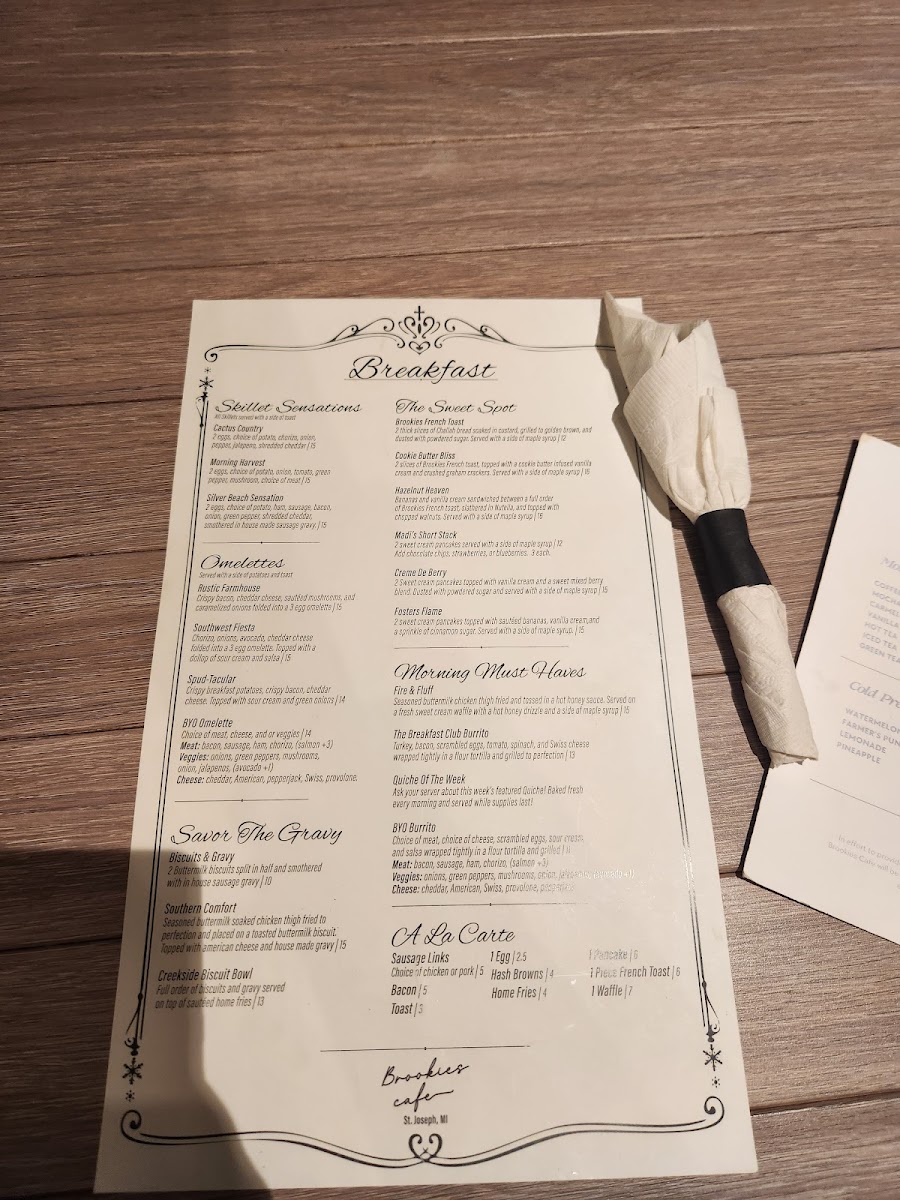 Breakfast
Skillet Sensations
All Skillets served with a side of toast
Cactus Country
2 eggs, choice of potato, chorizo, onion,
pepper, jalapeno, shredded cheddar | 15
Morning Harvest
2 eggs, choice of potato, onion, tomato, green
pepper, mushroom, choice of meat | 15
Silver Beach Sensation
2 eggs, choice of potato, ham, sausage, bacon,
onion, green pepper, shredded cheddar,
smothered in house made sausage gravy. | 15
Omelettes
Served with a side of potatoes and toast
Rustic Farmhouse
Crispy bacon, cheddar cheese, sautéed mushrooms, and
caramelized onions folded into a 3 egg omelette | 15
Southwest Fiesta
Chorizo, onions, avocado, cheddar cheese
folded into a 3 egg omelette. Topped with a
dollop of sour cream and salsa | 15
Spud-Tacular
Crispy breakfast potatoes, crispy bacon, cheddar
cheese. Topped with sour cream and green onions | 14
BYO Omelette
Choice of meat, cheese, and or veggies | 14
Meat: bacon, sausage, ham, chorizo, (salmon +3)
Veggies: onions, green peppers, mushrooms,
onion, jalapenos, (avocado +1)
Cheese: cheddar, American, pepperjack, Swiss, provolone.
Savor The Gravy
Biscuits & Gravy
2 Buttermilk biscuits split in half and smothered
with in house sausage gravy | 10
Southern Comfort
Seasoned buttermilk soaked chicken thigh fried to
perfection and placed on a toasted buttermilk biscuit.
Topped with american cheese and house made gravy | 15
Creekside Biscuit Bowl
Full order of biscuits and gravy served
on top of sautéed home fries | 13
The Sweet Spot
Brookies French Toast
2 thick slices of Challah bread soaked in custard, grilled to golden brown, and
dusted with powdered sugar. Served with a side of maple syrup | 12
Cookie Butter Bliss
2 slices of Brookies French toast, topped with a cookie butter infused vanilla
cream and crushed graham crackers. Served with a side of maple syrup | 16
Hazelnut Heaven
Bananas and vanilla cream sandwiched between a full order
of Brookies French toast, slathered in Nutella, and topped with
chopped walnuts. Served with a side of maple syrup | 16
Madi's Short Stack
2 sweet cream pancakes served with a side of maple syrup | 12
Add chocolate chips, strawberries, or blueberries. .3 each.
Creme De Berry
2 Sweet cream pancakes topped with vanilla cream and a sweet mixed berry
blend. Dusted with powdered sugar and served with a side of maple syrup | 15
Fosters Flame
2 sweet cream pancakes topped with sautéed bananas, vanilla cream, and
a sprinkle of cinnamon sugar. Served with a side of maple syrup. | 15
Morning Must Haves
Fire & Fluff
Seasoned buttermilk chicken thigh fried and tossed in a hot honey sauce. Served on
a fresh sweet cream waffle with a hot honey drizzle and a side of maple syrup | 15
The Breakfast Club Burrito
Turkey, bacon, scrambled eggs, tomato, spinach, and Swiss cheese
wrapped tightly in a flour tortilla and grilled to perfection | 13
Quiche Of The Week
Ask your server about this week's featured Quiche! Baked fresh
every morning and served while supplies last!
BYO Burrito
Choice of meat, choice of cheese, scrambled eggs, sour cream,
and salsa wrapped tightly in a flour tortilla and grilled | 11
Meat: bacon, sausage, ham, chorizo, (salmon +3)
Veggies: onions, green peppers, mushrooms, onion, jalapenos, (avocado +1)
Cheese: cheddar, American, Swiss, provolone,
A La Carte
Sausage Links
Choice of chicken or pork | 5
Bacon | 5
Toast | 3
1 Egg | 2.5
Hash Browns | 4
Home Fries | 4
1 Pancake | 6
1 Piece French Toast | 6
1 Waffle | 7
Brookies
cafe
St. Joseph, MI
HOT TEA
ICED TEA
GREEN TEA
Cold
WATERMELON
FARMER'S
LEMONADE
PINEAPPLE
In effort to
Brookies Cafe will